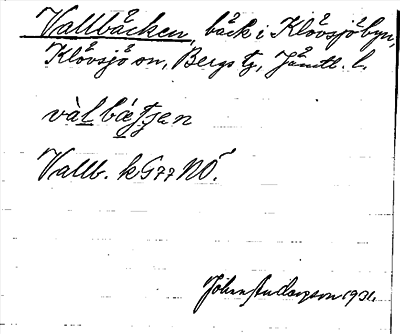 Vallbäcken, bäck i Klövsjö byn,
Klövsjö sn, Bergs tg, Jämtl. l.
vàl bæ̀tʃen
Vallb. k G77 NÖ.
John Andersson 1931.